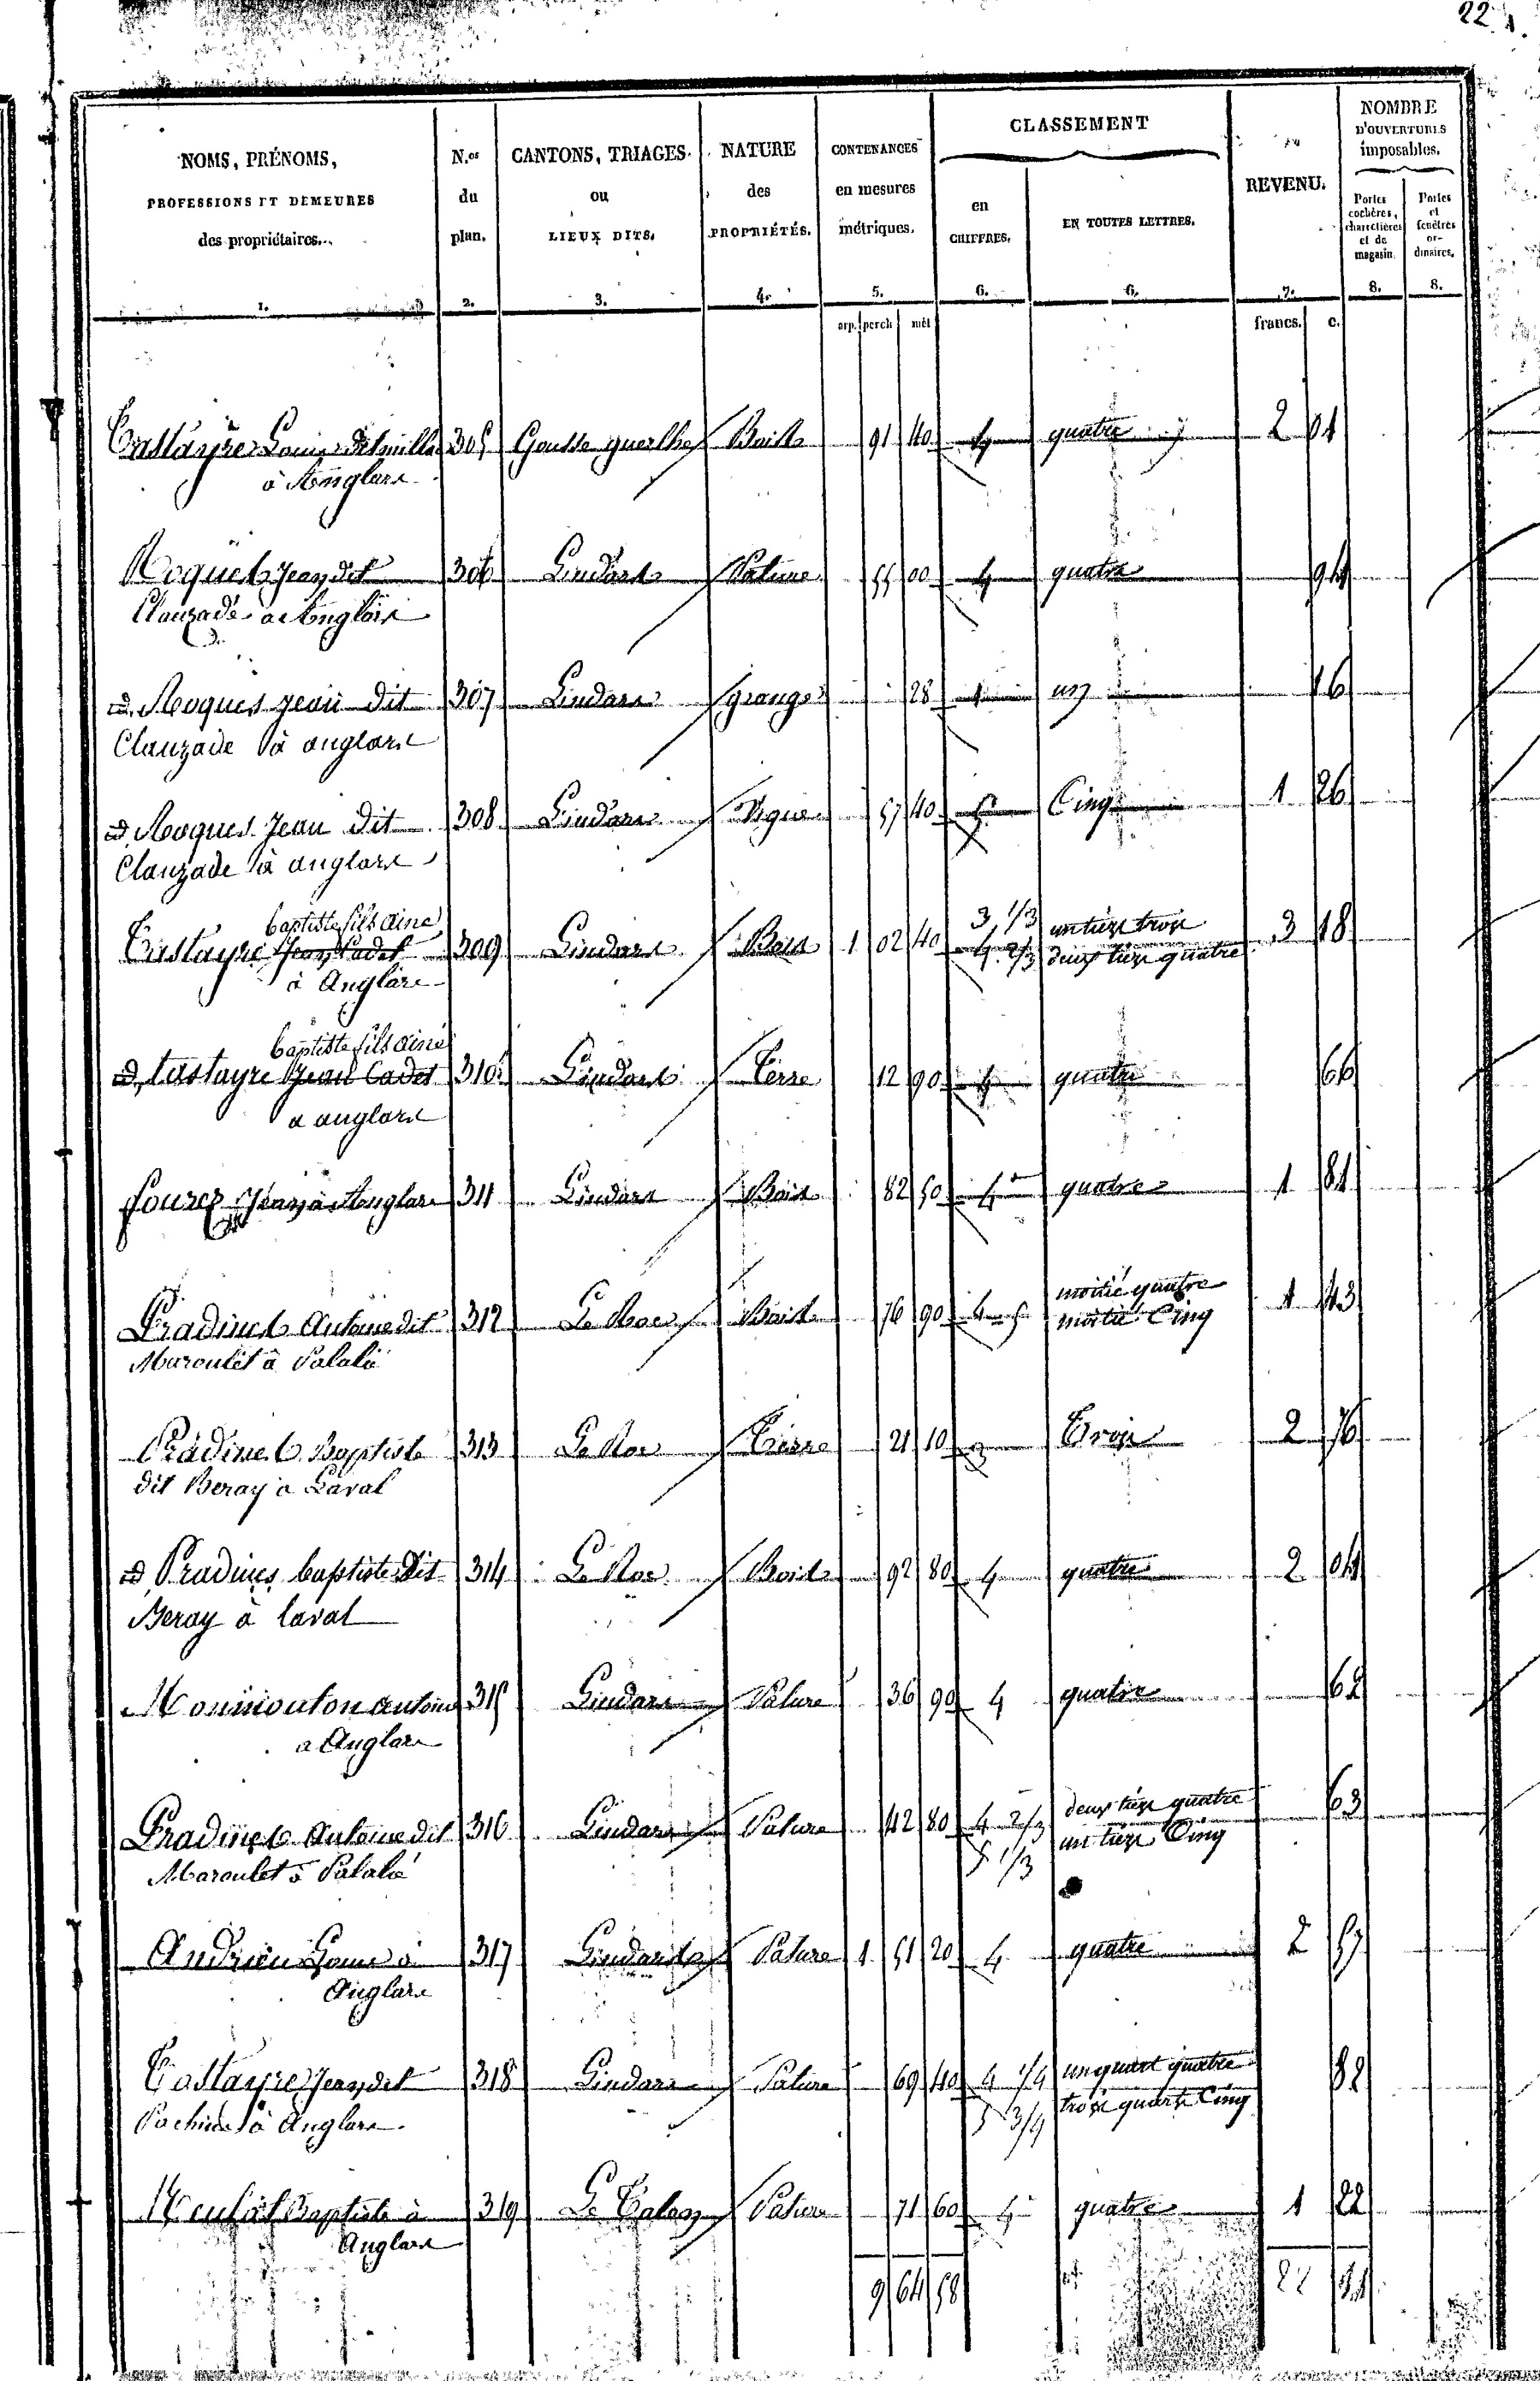 22
NOMS, PRÉNOMS,
PROFESSIONS ET DEMEURES
des propriétaires.
1.
N.os
du
plan.
2.
CANTONS, TRIAGES.
ou
LIEUX DITS.
3.
NATURE
des
PROPRIÉTÉS.
4.
CONTENANCES
en mesures
métriques.
5.
arp. perch mèt
CLASSEMENT
en
CHIFFRES.
6.
EN TOUTES LETTRES.
6.
REVENU.
7.
francs. c.
NOMBRE
D'OUVERTURES
imposables.
Portes
cochères,
charretières
et de
magasin.
8.
Portes
et
fenêtres
or-
dinaires.
8.
Castayre Louis 305 Bois 91 40 4 quatre 2 01
à Anglars
Roques Jean dit 306 Lindars Pature 55 00 4 quatre 94
Clauzade à Anglars
d. Roques Jean dit 307 Lindars grange 28 1 un 16
Clauzade à anglars
d. Roques Jean dit 308 Lindars Vigne 57 40 5 Cinq 1 26
Clauzade à anglars
baptiste fils ainé 3 1/3 un tiers trois
Castayre Jean Cadet 309 Lindars Bois 1 02 40 4 2/3 deux tiers quatre 3 18
à Anglars
baptiste fils ainé
d. Castayre Jean Cadet 310 Lindars Terre 12 90 4 quatre 66
a anglars
Jean à Anglars 311 Lindars Bois 82 50 4 quatre 1 81
moitié quatre
Pradines Antoine dit 312 Le Roc Bois 76 90 4 5 moitié Cinq 1 43
Maroulet à Palalié
Pradines Baptiste 313 Le Roc Terre 21 10 3 Trois 2 76
dit Beray à Laval
d. Pradines baptiste dit 314 Le Roc Bois 92 80 4 quatre 2 04
Beray à laval
Monmouton antoine 315 Lindars Pature 36 90 4 quatre 62
a Anglars
deux tiers quatre
Pradines Antoine dit 316 Lindars Pature 42 80 4 2/3 un tiers Cinq 63
Maroulet à Palalié 5 1/3
Andrieu à 317 Lindars Pature 1 51 20 4 quatre 2 57
Anglars
Castayre Jean dit 318 Lindars Pature 69 40 4 1/4 un quart quatre 82
à Anglars 5 3/4 trois quarts Cinq
Baptiste à 319 Pature 71 60 4 quatre 1 22
Anglars
9 64 58 22